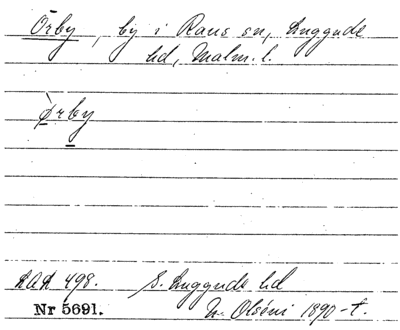 Örby, by i Raus sn, Luggude
hd, Malm. l.
Òrby
LAL 498. S. Luggude hd
Nr 5691. N. Olséni 1890-t.